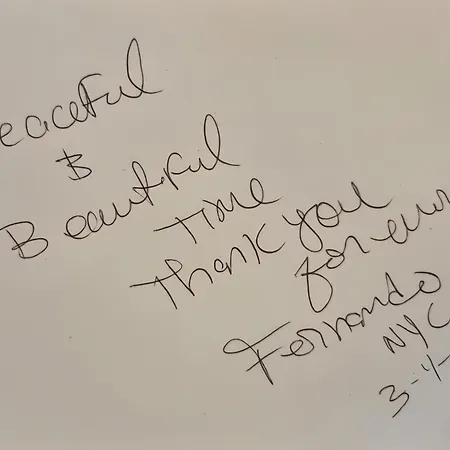 eaceful
&
Beautiful
Time
Thank you
for
Fernando
NYC
3-4-